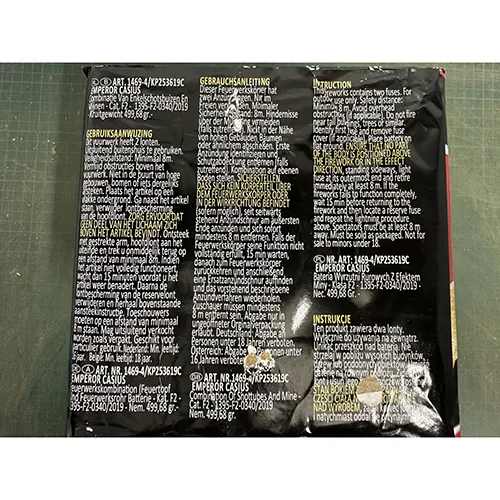 ART. 1469-4/KP253619C
EMPEROR CASIUS
Combinatie Van Enkelschotsbuizen En
Mines - Cat. F2 - 1395-F2-0340/2019 -
Kruitgewicht 499,68gr.-
GEBRUIKSAANWIJZING
Dit vuurwerk heeft 2 lonten.
Uitsluitend buitenshuis te gebruiken.
Veiligheidsafstand: Minimaal 8m.
Verwijd obstructies boven het
vuurwerk. Niet in de buurt van hoge
gebouwen, bomen of iets dergelijks
afsteken. Plaats het artikel op een
vlakke ondergrond. Ga naast het artikel
staan, verwijder het lontkapje
van de hoofdlont. ZORG ERVOOR DAT
GEEN DEEL VAN HET LICHAAM ZICH
BOVEN HET ARTIKEL BEVINDT. Ontsteek
met gestrekte arm, hoofdlont aan het
uiteinde en trek u onmiddellijk terug op
een afstand van minimaal 8m. Indien
het artikel niet volledig functioneert,
wacht dan 15 minuten voordat u het
artikel weer benadert. Daarna de
lontbescherming van de reservelont
verwijderen en herhaal bovenstaande
afsteekinstructie. Toeschouwers
moeten op een afstand van minimaal
8 m staan. Mag uitsluitend verkocht
worden zoals verpakt. Geschikt voor
particulier gebruik. Nederland: Min. leeftijd:
jaar. België: Min. leeftijd: 18 jaar.
ART. NR. 1469-4/KP253619C
EMPEROR CASIUS
Feuerwerkskombination (Feuertopf
und Feuerwerksrohr Batterie - Kat. F2
- 1395-F2-0340/2019 - Nem. 499,68 gr.
GEBRAUCHSANLEITUNG
Dieser Feuerwerkskörper hat
zwei Anzündungen. Nur im
Freien verwenden. Minimaler
Sicherheitsabstand: 8m. Hindernisse
über der Batterie vermeiden
(falls zutreffend). Nicht in der Nähe
von hohen Gebäuden, Bäumen
oder ähnlichem abschießen. Erste
Anzündung identifizieren und
Schutzabdeckung entfernen (falls
zutreffend). Kombination auf ebenen
Boden stellen. SICHERSTELLEN
DASS SICH KEIN KÖRPERTEIL ÜBER
DEM FEUERWERKSKÖRPER ODER
IN DER WIRKRICHTUNG BEFINDET
(sofern möglich), seit seitwärts
stehend Anzündschnur am äußersten
Ende anzünden und sich sofort
mindestens 8 m entfernen. Falls der
Feuerwerkskörper seine Funktion nicht
vollständig erfüllt, 15 min warten,
danach zum Feuerwerkskörper
zurückkehren und anschließend
die Ersatzanzündschnur auffinden
und das vorstehend beschriebene
Anzündverfahren wiederholen.
Zuschauer müssen mindestens
8 m entfernt sein. Abgabe nur in
ungeöffneter Originalverpackung
erlaubt. Deutschland: Abgabe an
Personen unter 18 Jahren verboten.
Österreich: Abgabe an Personen unter
16 Jahren verboten.
ART. NR. 1469-4/KP253619C
EMPEROR CASIUS
Combination Of Shottubes And Mine -
Cat. F2 - 1395-F2-0340/2019 -
Nem. 499,68 gr.
INTRUCTION
This fireworks contains two fuses. For
outdoor use only. Safety distance:
Minimum 8 m. Avoid overhead
obstructions (if applicable). Do not fire
near tall buildings, trees or similar.
Identify first fuse and remove fuse
cover if applicable. Place battery on
flat ground. ENSURE THAT NO PART
OF THE BODY IS POSITIONED ABOVE
THE FIREWORK OR IN THE EFFECT
DIRECTION, standing sideways, light
fuse at its outermost end and retire
immediately at least 8 m. If the
firework fails to function completely,
wait 15 min before returning to the
firework and then locate a reserve fuse
and repeat the lightning procedure
above. Spectators must be at least 8 m
away. Must be sold as packaged. Not for
sale to minors under 18
NR. ART. 1469-4/KP253619C
EMPEROR CASIUS
Bateria Wyrzutni Rurowych Z Efektem
Miny - Klasa F2 - 1395-F2-0340/2019 -
Nec. 499,68 gr. -
INSTRUKCJE
Ten produkt zawiera dwa lonty.
Wyłącznie do użytku na zewnątrz.
Unikać przeszkód nad baterią. Nie
strzelaj w pobliżu wysokich budynków,
drzew
usuń jego
STAŃ BOKIEM
CZĘŚCI CIAŁA
NAD WYROBEM, zapal koniec lontu
i natychmiast oddal się na minimum